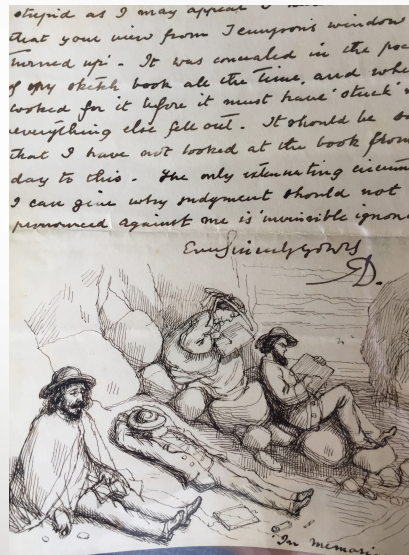 stupid as I may appear I
that your view from Tennyson's window
turned up'. It was concealed in the poc
of my sketch book all the time, and whe
looked for it before it must have 'stuck'
everything else fell out. It should be
that I have not looked at the book from
day to this. The only extenuating circum
I can give why judgment should not
pronounced against me is 'invincible ignor
Ever Sincerely Yours
RD.
"In memori